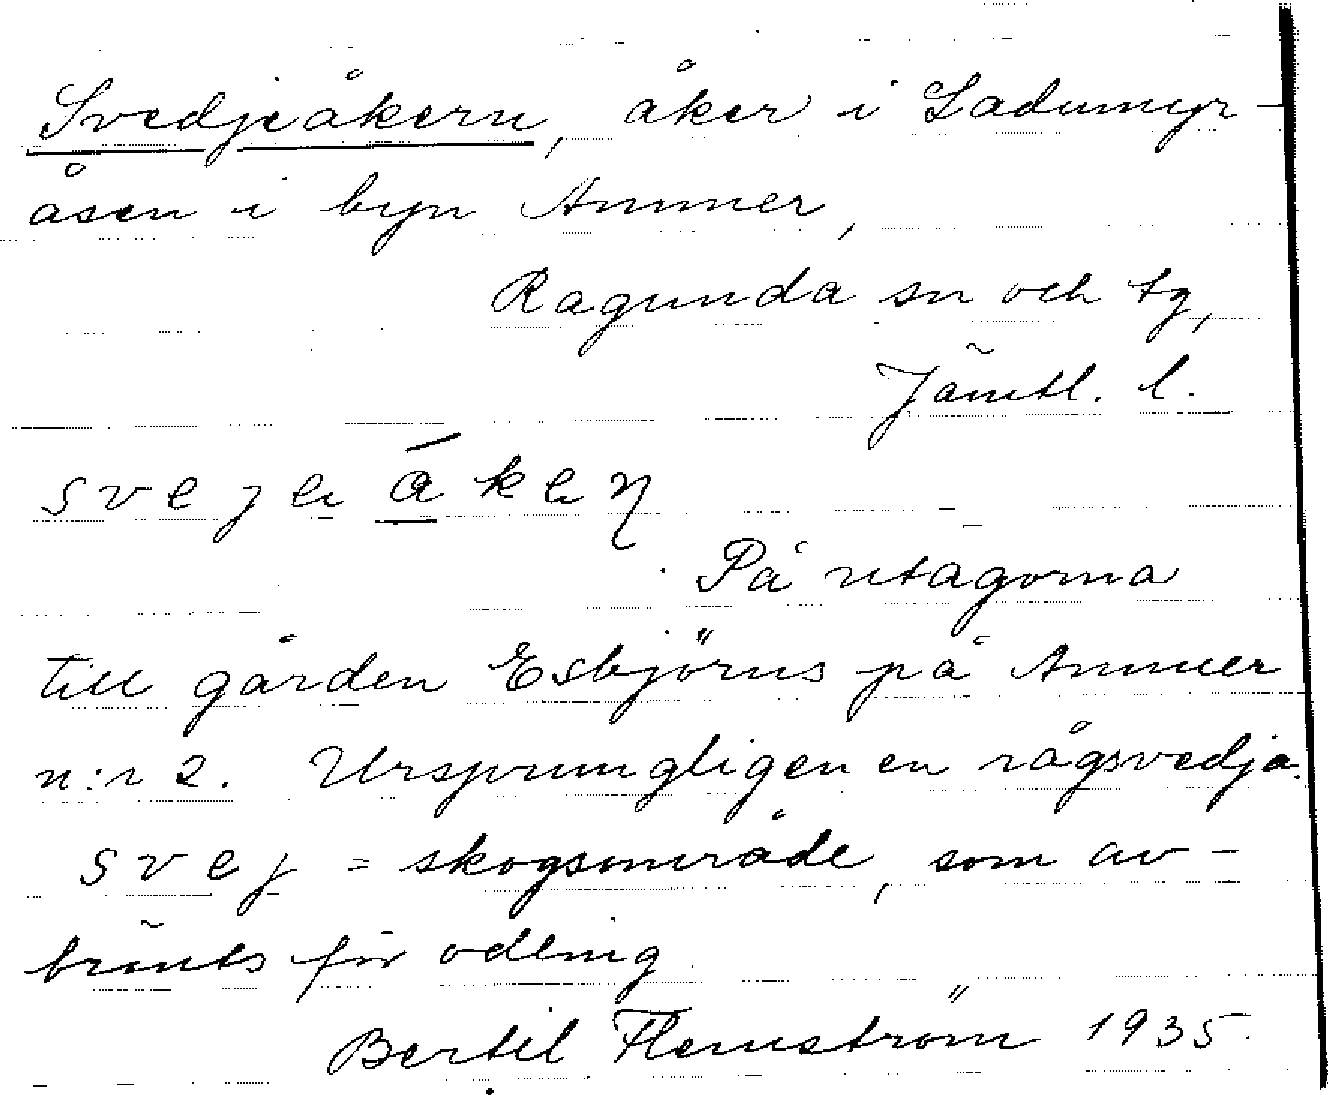 Svedjeåkern, åker i Ladumyr-
åsen i byn Ammer,
Ragunda sn och tg,
Jämtl. l.
svejeåkeŋ
På utägorna
till gården Esbjörns på Ammer
n:r 2. Ursprungligen en rågsvedja.
svej = skogsområde, som av-
bränts för odling
Bertil Flemström 1935.